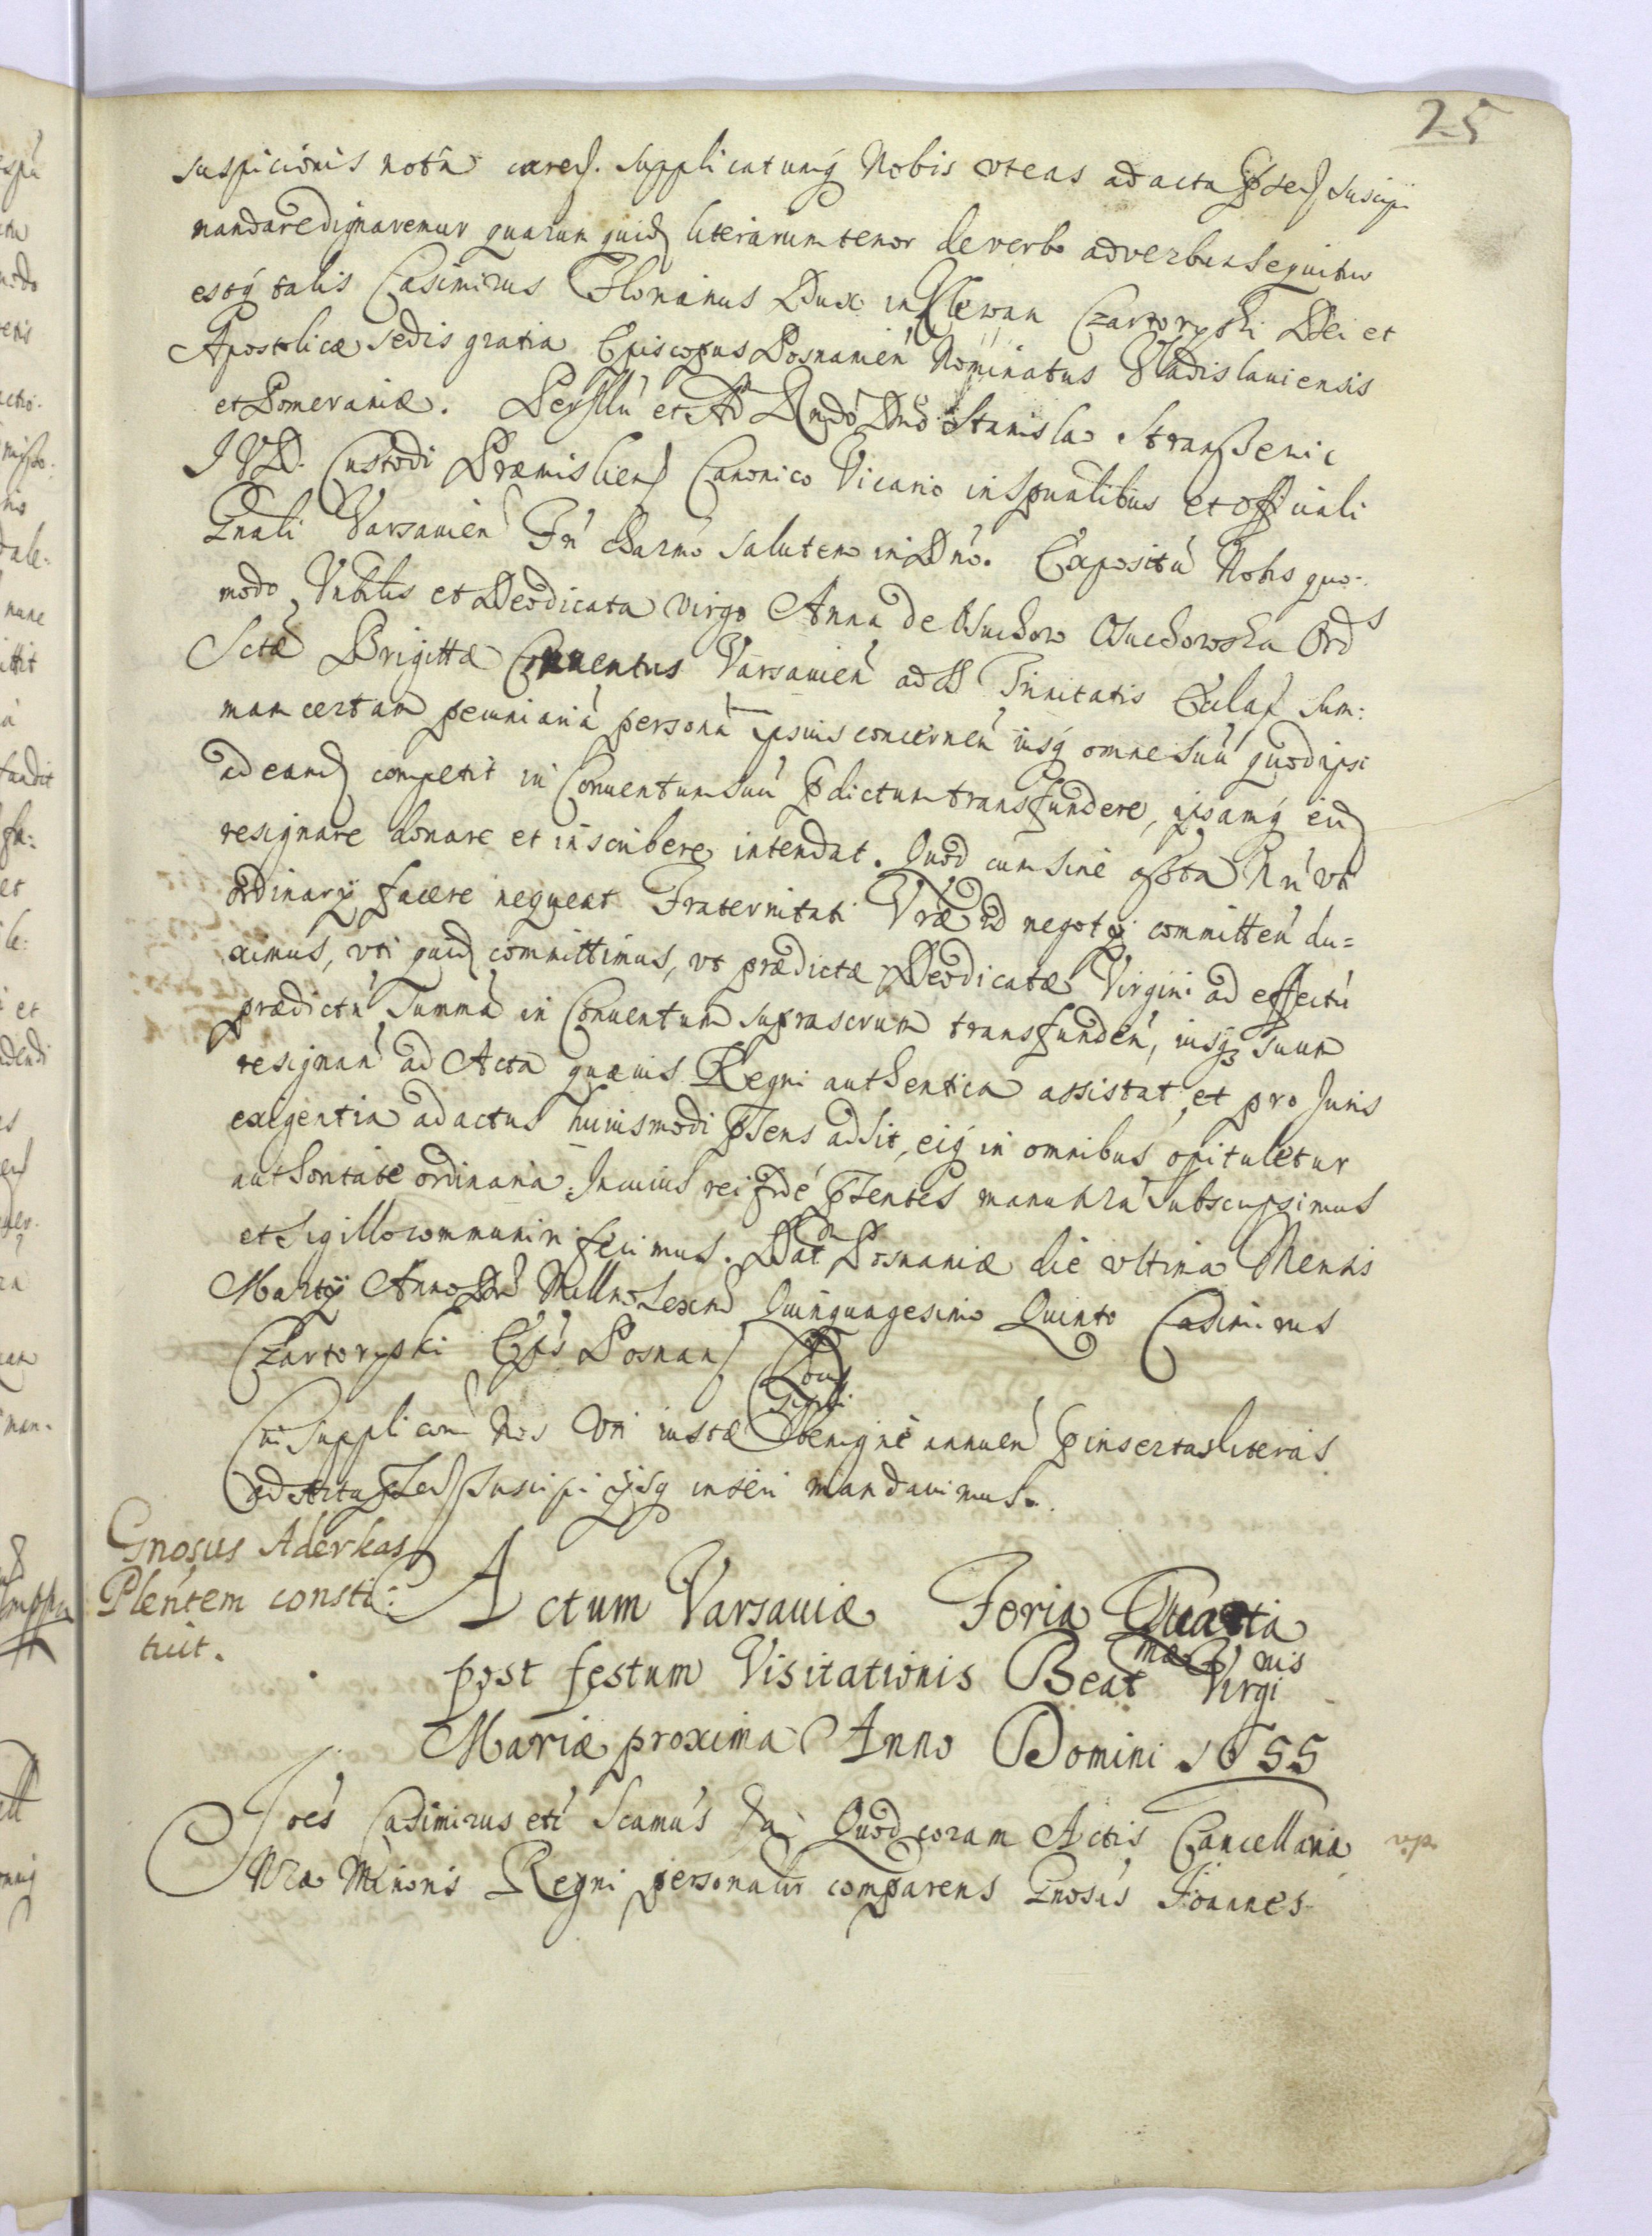 25
suspicionis notâ carens. supplicatumq Nobis vt eas ad acta pntes suscipi
mandare dignaremur quarum quid literarum tenor de verbo ad verbum sequitur
estq talis Casimirus Florianus Dux in Klewan Czartoryski Dei et
Apostolicæ sedis gratia Episcopus Posnanien Nominatus Vladislauiensis
et Pomeraniæ. Perillu et Ad Rndo Dno Stanislao
I V D. Custodi Præmislien Canonico Vicario in Spualibus et Officiali
Gnali Varsauien Fri charmo salutem in Dno. Expositu Nobis quo-
modo Nobilis et Deodicata virgo Anna de Ord s
Sctæ Brigittæ Conuentus Varsauien ad SS Trinitatis Eccla sum:
mam certam pecuniariâ personâ ipsius concernen iusq omne suu quod ipsi
ad eand competit in Conuentum suu pdictum transfundere, ipsamq eid
resignare donare et inscribere intendat. Quod cum sine assta Nra vti
ordinarij facere nequeat Fraternitati Vræ id negotij committen du=
ximus, vti quid committimus, vt prædictæ Deodicatæ Virgini ad effectû
prædictâ Summâ in Conuentum suprascrum transfunden, iusq3 suum
resignan ad Acta quæuis Regni authentica assistat, et pro Juris
exigentia ad actus huiusmodi psens adsit, eiq in omnibus opituletur
authoritate ordinaria. In cuius rei fidé psentes manu nra subscripsimus
et sigillo communiri fecimus. Dat Posnaniæ die vltima Mensis
Martij Anno Dni Millmo Sexcno Quinquagesimo Quinto Casimirus
Czartoryski Eps Posnan
Cui supplicaoni Nos vti iustæ benigne annuen pinsertas literas
ad Acta pntes suscipi ijsq inseri mandauimus.
Gnosus Aderkas
Plentem consti:
tuit.
Actum Varsauiæ Feria Quarta
post festum Visitationis Beat mæ Virgi nis
Mariæ proxima Anno Domini 1655
Joes Casimirus etc Scamus Quod coram Actis Cancellariæ
Nræ Minoris Regni personalr comparens Gnosus Joannes